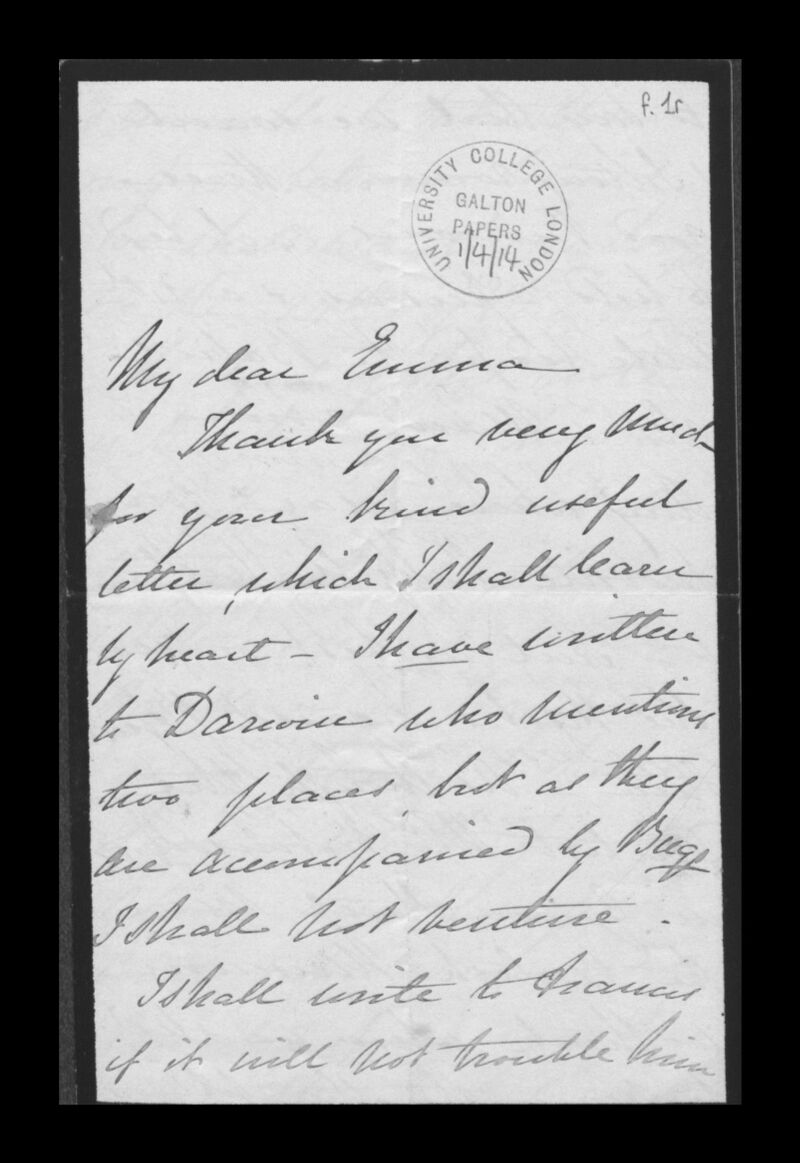 f. 1r
UNIVERSITY COLLEGE LONDON
GALTON
PAPERS
1/4/14
My dear Emma
Thank you very much
for your kind useful
letter, which I shall learn
by heart - I have written
to Darwin who mentions
two places, but as they
are accompanied by Bugs
I shall not venture.
I shall write to Francis
if it will not trouble him